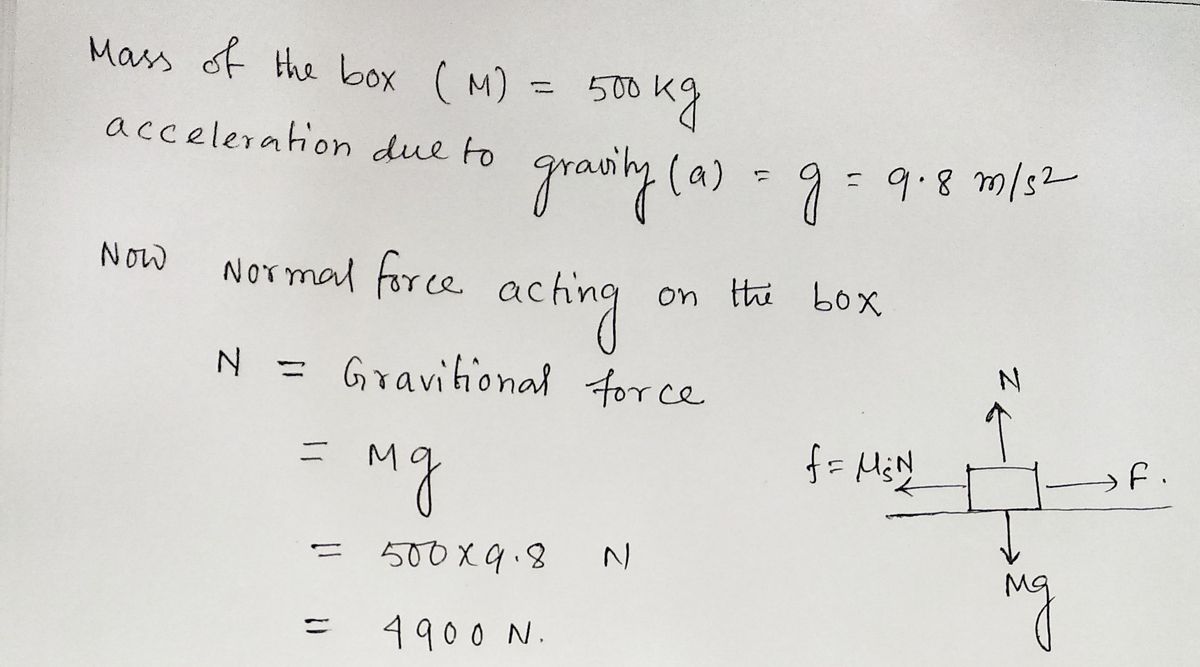 Mass of the box (M) = 500 kg
acceleration due to gravity (a) = g = 9.8 m/s2
Now Normal force acting on the box
N = Gravitional force
= Mg
= 500x9.8 N
= 4900 N.
N
f = μsN
F.
Mg